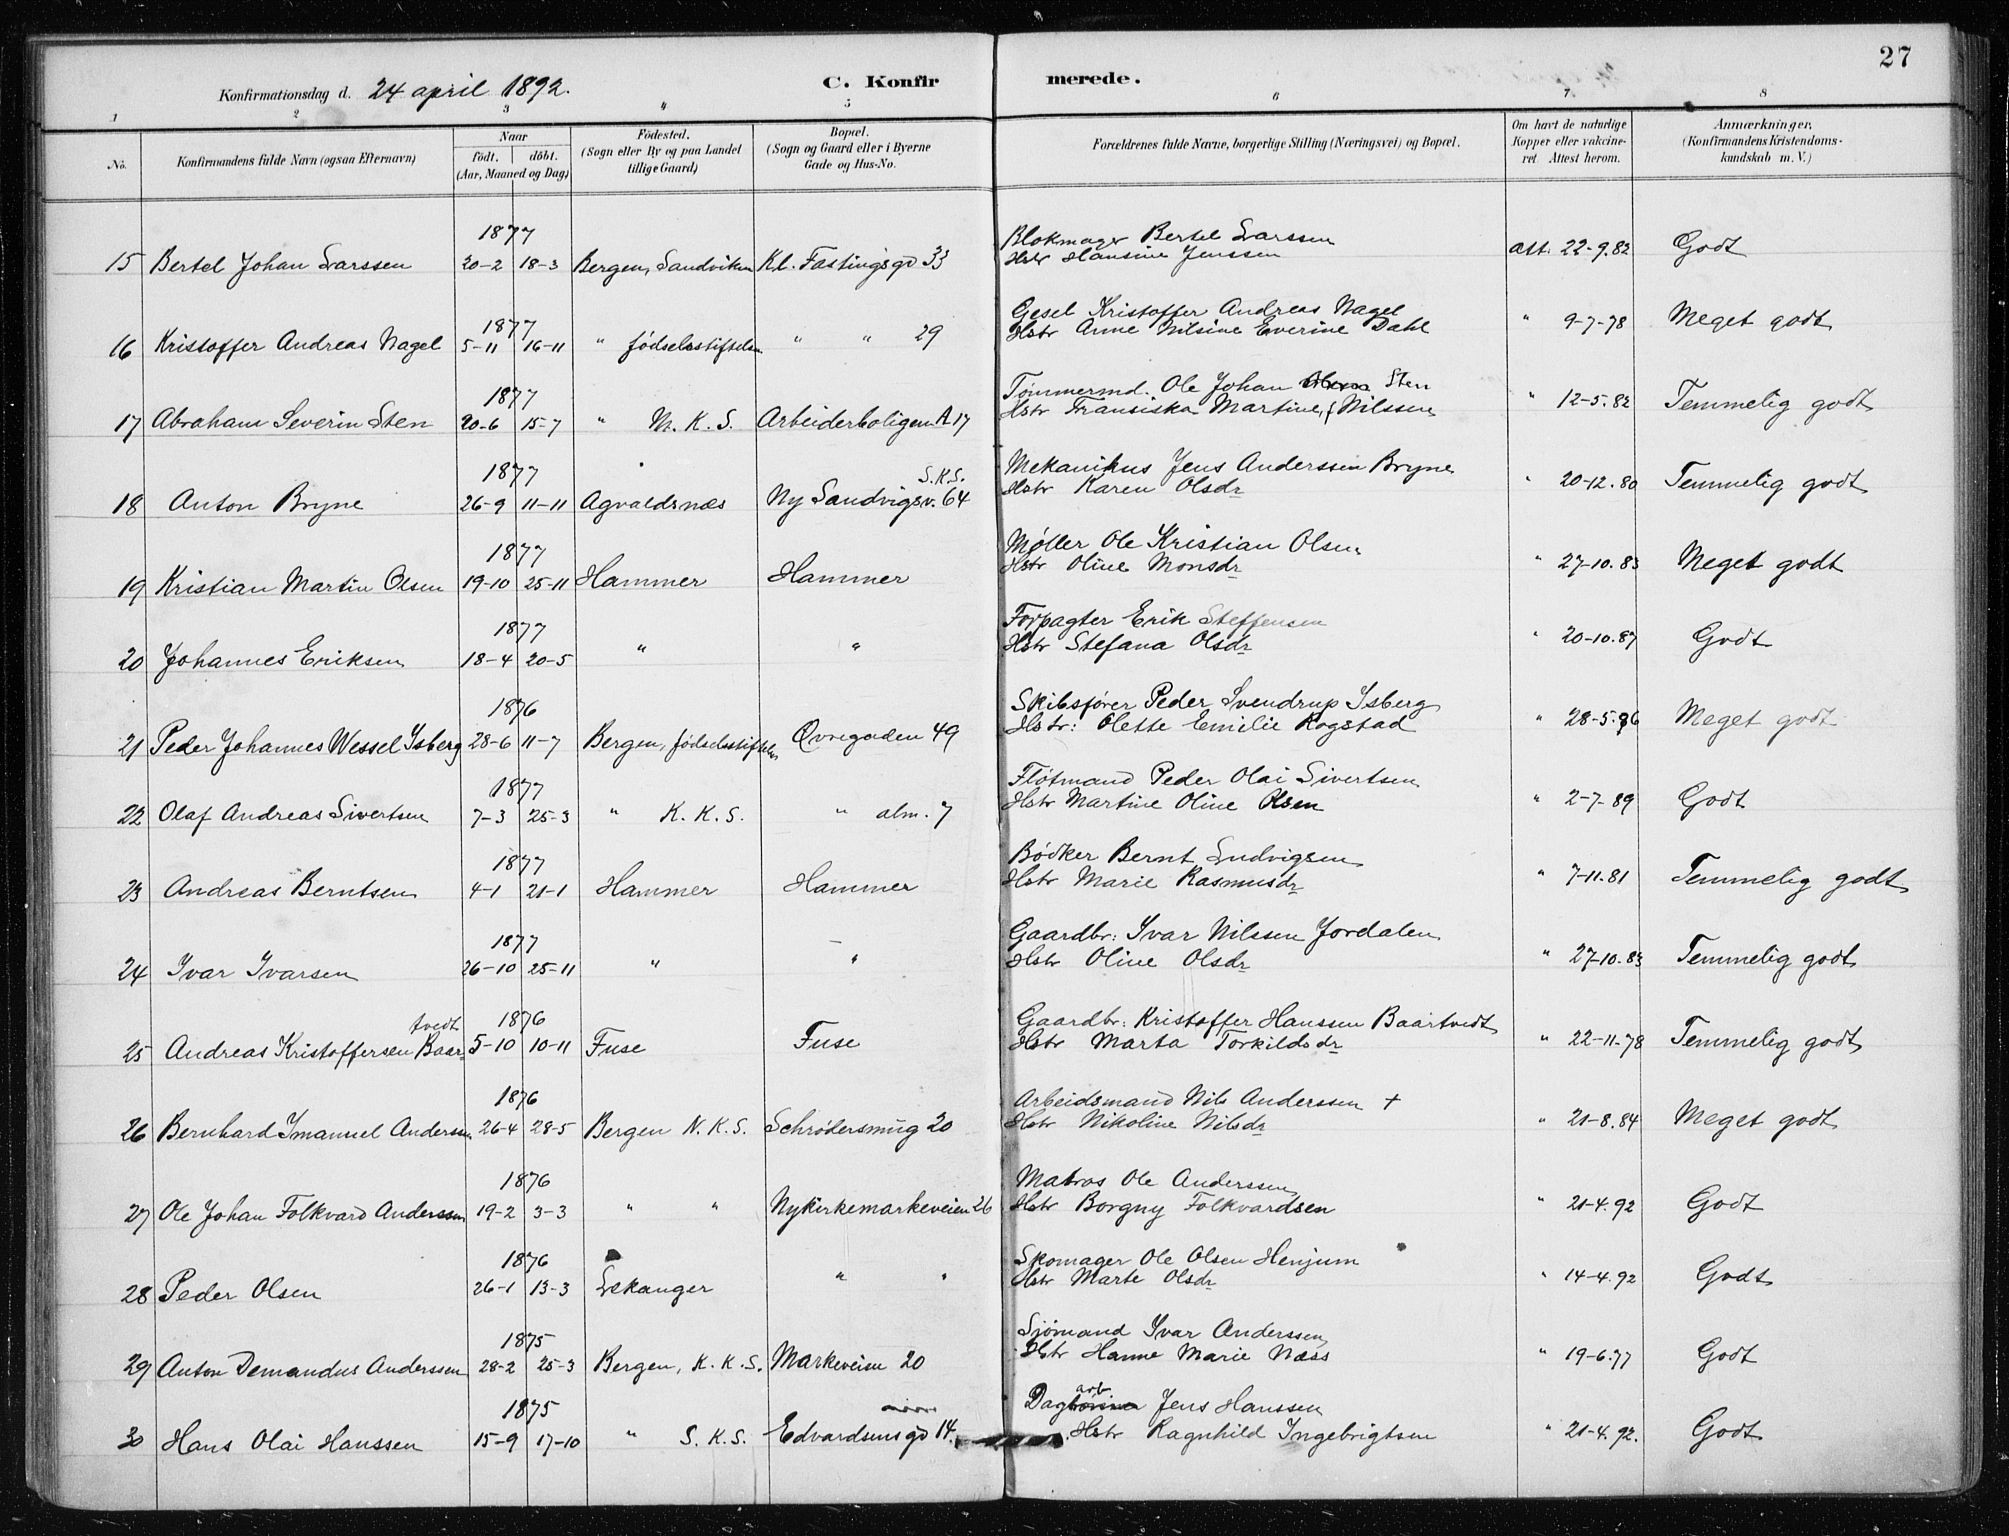 27
Konfirmationsdag d. 24 april 1892. C. Konfirmerede.
1 2 3 4 5 6 7 8
No. Konfirmandens fulde Navn (ogsaa Efternavn) Naar födt. döbt. (Aar, Maaned og Dag) Födested. (Sogn eller By og paa Landet tillige Gaard) Bopæl. (Sogn og Gaard eller i Byerne Gade og Hus-No. Forældrenes fulde Navne, borgerlige Stilling (Næringsvei) og Bopæl. Om havt de naturlige Kopper eller vakcineret. Attest herom. Anmærkninger. (Konfirmandens Kristendomskundskab m. V.)
1877 Blokmager Bertel Larssen
15 Bertel Johan Larssen 20-2 18-3 Bergen, Sandviken Kl. Fastingsgd 33 Hstr Hansine Jenssen att. 22-9.82 Godt
1877 Gesel Kristoffer Andreas Nagel
16 Kristoffer Andreas Nagel 5-11 16-11 " födselsstiftelsen " " 29 Hstr Anne Nilsine Everine Dahl " 9-7-78 Meget godt
1877 Tømmermd. Ole Johan Sten
17 Abraham Severin Sten 20-6 15-7 " M. K. S. Arbeiderboligen A 17 Hstr Fransiska Martine f Nilssen " 12-5.82 Temmelig godt
1877 S.K.S. Mekanikus Jens Anderssen Bryne
18 Anton Bryne 26-9 11-11 Agvaldsnæs Ny Sandvigsv. 64 Hstr Karen Olsdr " 20-12.80 Temmelig godt
1877 Møller Ole Kristian Olsen
19 Kristian Martin Olsen 19-10 25-11 Hammer Hammer Hstr Oline Monsdr " 27-10.83 Meget godt
1877 Forpagter Erik Steffensen
20 Johannes Eriksen 18-4 20-5 " " Hstr Stefana Olsdr " 20-10.87 Godt
1876 Skibsfører Peder Svendrup Isberg
21 Peder Johannes Wessel Isberg 28-6 11-7 Bergen, fødselsstiftelsen Øvregaden 49 Hstr: Olette Emilie Rogstad " 28-5. Meget godt
1877 Fløtmand Peder Olai Sivertsen
22 Olaf Andreas Sivertsen 7-3 25-3 " K. K. S. " alm. 7 Hstr Martine Oline Olsen " 2-7-89 Godt
1877 Bødker Bernt Ludvigsen
23 Andreas Berntsen 4-1 21-1 Hammer Hammer Hstr Marie Rasmusdr " 7-11.81 Temmelig godt
1877 Gaardbr: Ivar Nilssen Jordalen
24 Ivar Ivarsen 26-10 25-11 " " Hstr Oline Olsdr " 27-10.83 Temmelig godt
tvedt 1876 Gaardbr: Kristoffer Hanssen Baartvedt
25 Andreas Kristoffersen Baar 5-10 10-11 Fuse Fuse Hstr Marta Torkildsdr " 22-11-78 Temmelig godt
1876 Arbeidsmand Nils Anderssen +
26 Bernhard Imanuel Anderssen 26-4 28-5 Bergen N. K. S. Schrødersmug 20 Hstr Nikoline Nilsdr " 21-8.84 Meget godt
1876 Matros Ole Anderssen
27 Ole Johan Folkvard Anderssen 19-2 3-3 " " Nykirkemarkeveien 26 Hstr Borgny Folkvardsen " 21-4.92 Godt
1876 Skomager Ole Olsen Henjum
28 Peder Olsen 26-1 13-3 Lekanger " " Hstr Marte Olsdr " 14-4.92 Godt
1875 Sjömand Ivar Anderssen
29 Anton Demandus Anderssen 28-2 25-3 Bergen, K. K. S. Markeveien 20 Hstr Hanne Marie Næss " 19-6.77 Godt
1875 Dagarb Jens Hanssen
30 Hans Olai Hanssen 15-9 17-10 " S. K. S. Edvardsensgd 14. Hstr Ragnhild Ingebrigtsen " 21-4.92. Godt